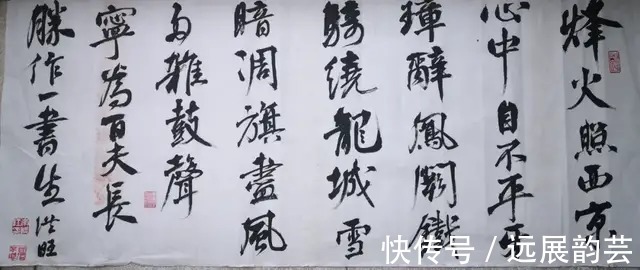 烽火照西京
心中自不平牙
璋辭鳳闕鐵
騎繞龍城雪
暗凋旗畫風
多雜鼓聲
寧為百夫長
勝作一書生 洪旺
快传号 / 远展韵芸